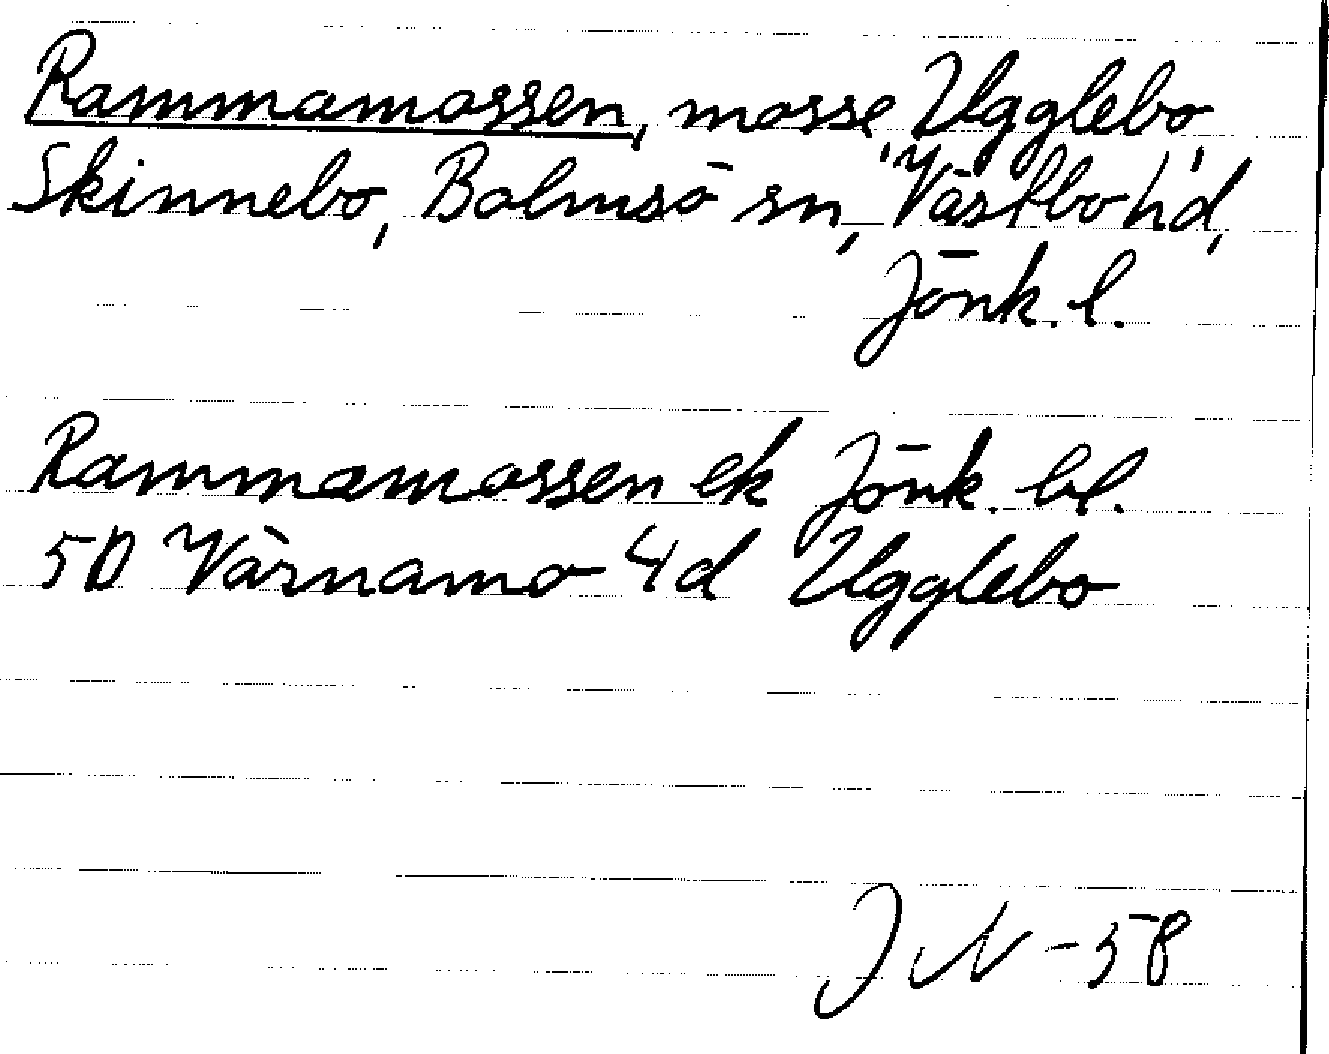 Rammamossen, mosse, Ugglebo,
Skinnebo, Bolmsö sn, Västbo hd,
Jönk. l.
Rammamossen ek Jönk. bl.
5D Värnamo 4d Ugglebo
JN -58